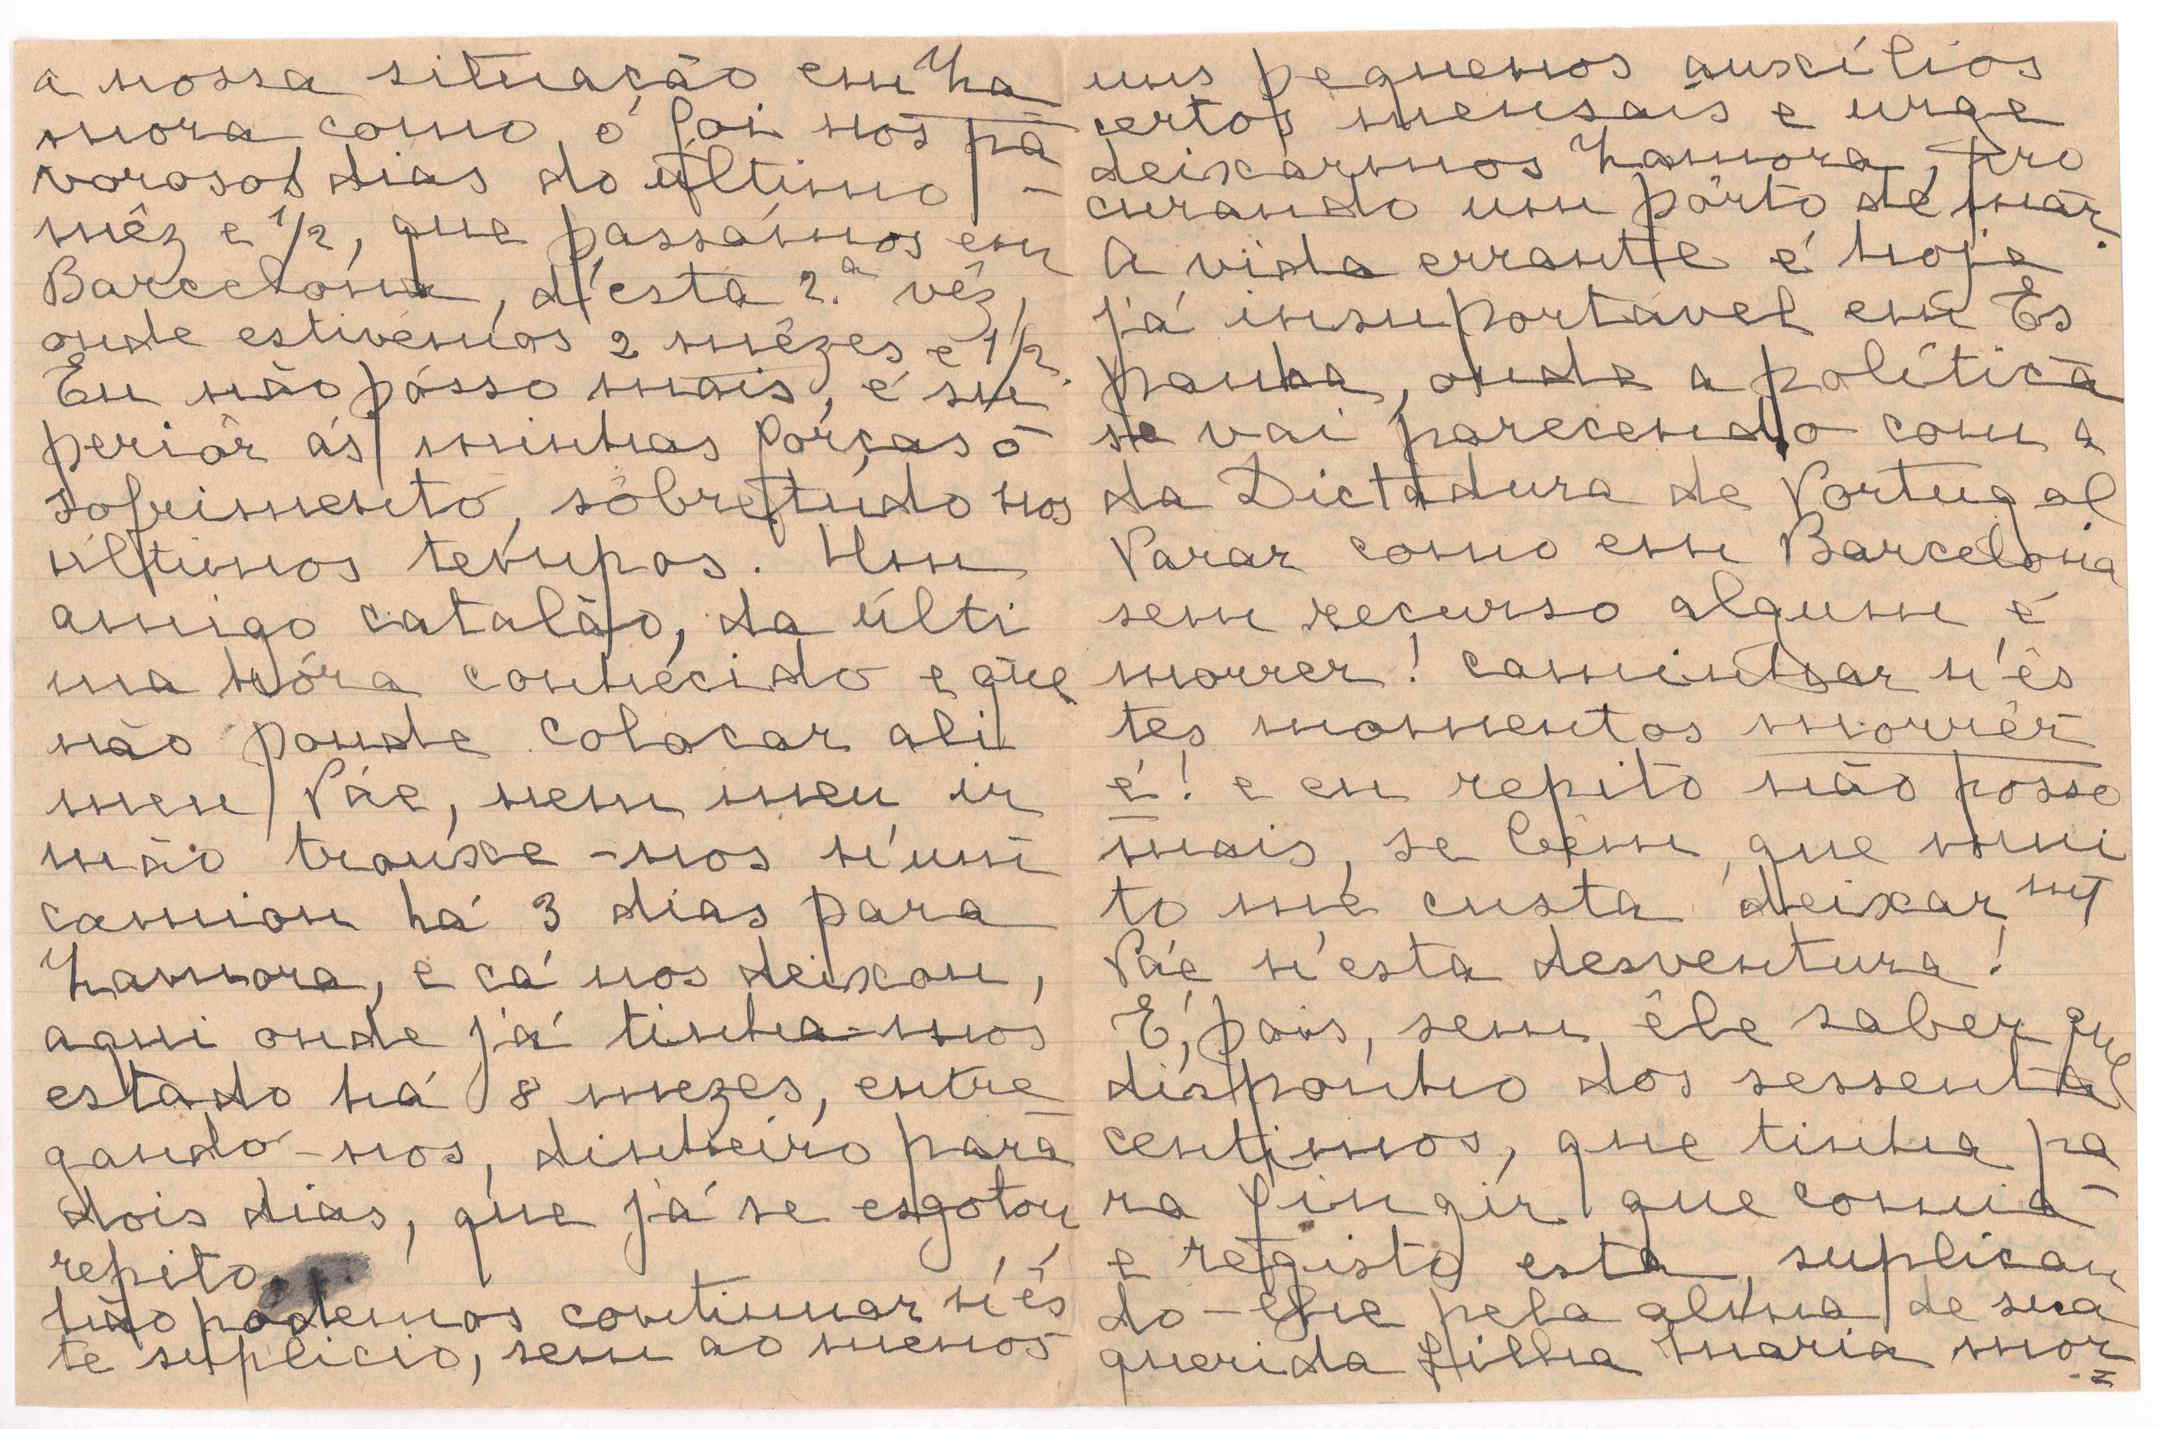 a nossa situação em Za
mora como o foi nos pa
vorosos dias do último
mêz e 1/2, que passámos em
Barcelona, d'esta 2.ª vêz,
onde estivémos 2 mêzes e 1/2.
Eu não pósso mais, é su
periôr ás minhas fôrças o
sofrimento, sôbretúdo nos
últimos tempos. Um
amigo catalão, da últi
ma hóra conhecido e que
não poude colocar ali
meu Páe, nem meu ir
mão trouxe-nos n'um
camion há 3 dias para
Zamora, e cá nos deixou,
aqui onde já tinha-mos
estado há 8 mezes, entre
gando-nos, dinheiro para
dois dias, que já se esgotou
repito.
Não podemos continuar n'ês
te suplicio, sem ao menos
uns pequenos auxílios
certos mensais e urge
deixarmos Zamora, pro
curando um pôrto de mar.
A vida errante é hoje
já insuportavel em Es
panha, onde a política
se vai parecendo com a
da Dictadura de Portugal
Parar como em Barcelona
sem recurso algum é
morrer! caminhar n'ês
tes momentos morrêr
é! e eu repito não posso
mais, se bem, que mui
to me custa deixar mt
Páe n'esta desventura!
E, pois, sem êle saber que
disponho dos sessenta
centimos, que tinha pa
ra fingir que comia
e registo esta, suplican
do-lhe pela alma de sua
querida Filha Maria mor